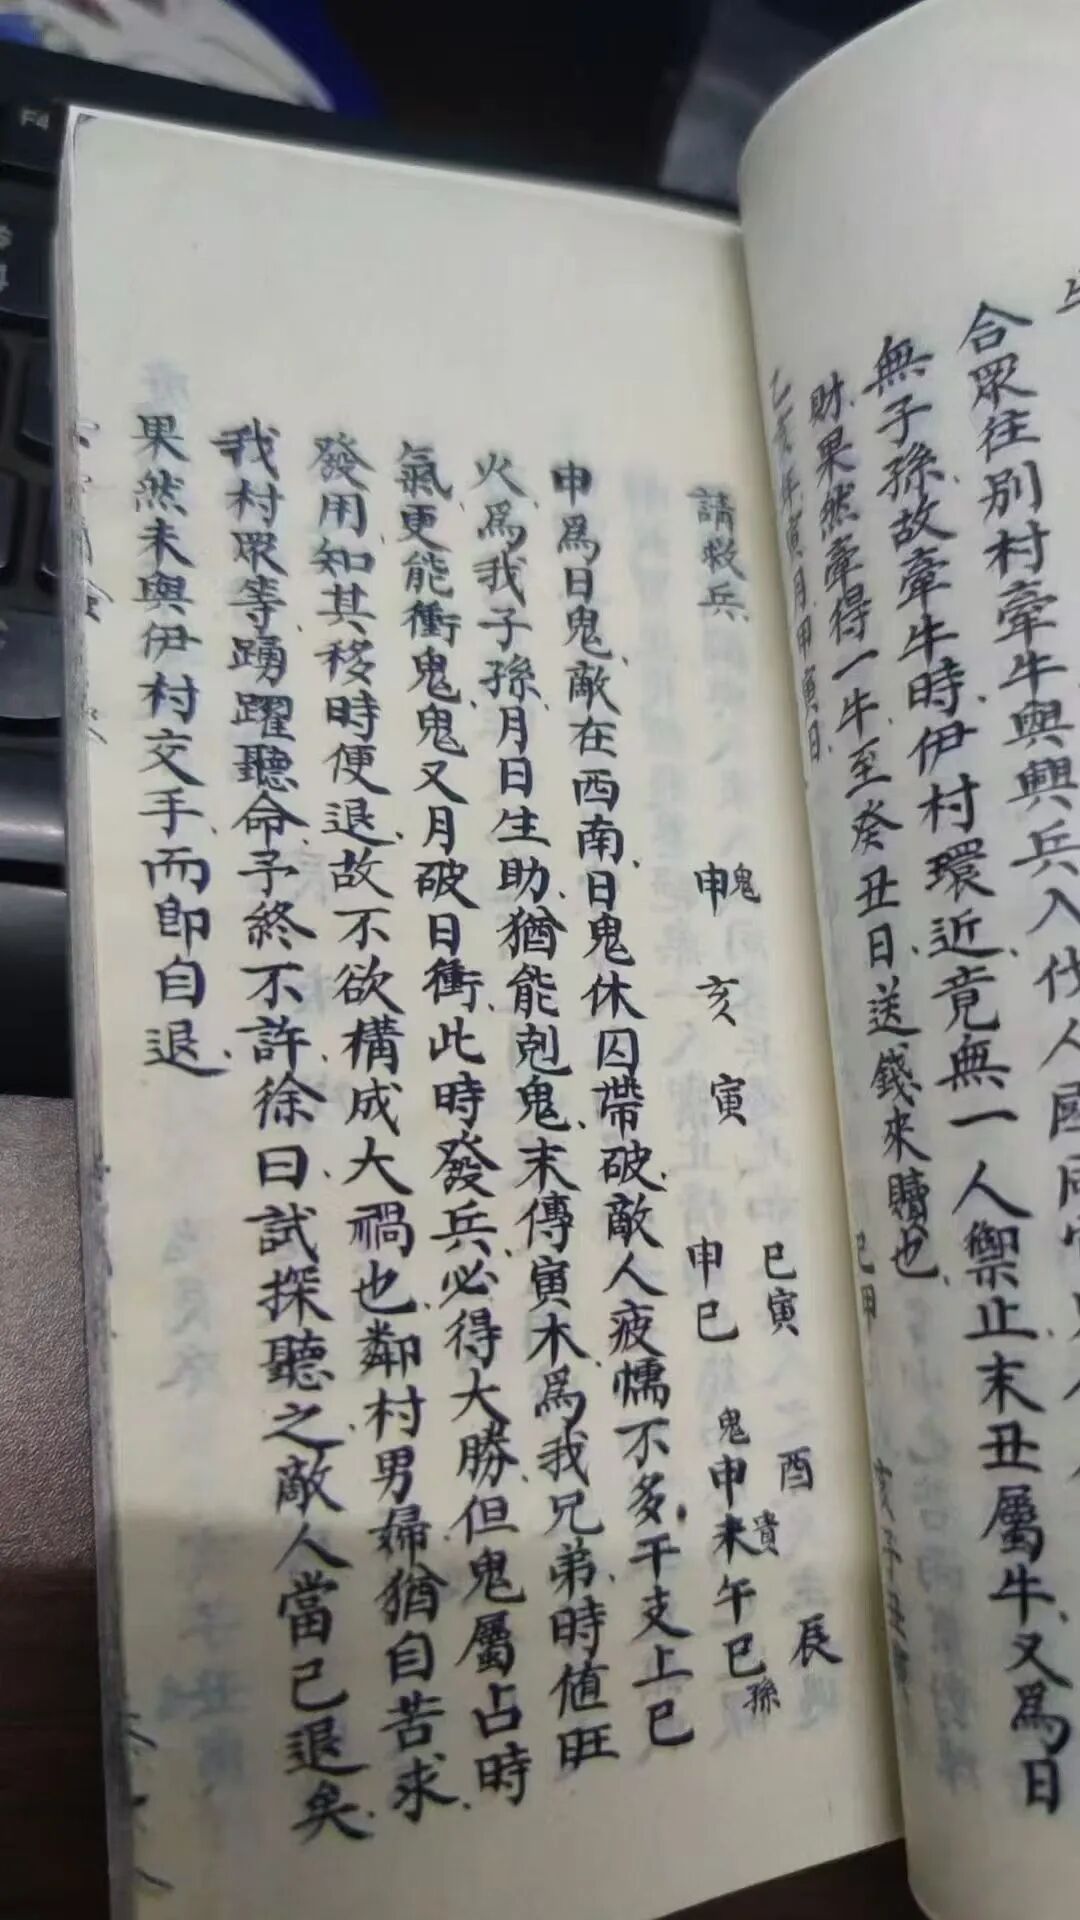 合眾往別村牽牛與興兵入伐人國同
無子孫故牽牛時伊村環近竟無一人禦止末丑屬牛又為日
財果然牽得一牛至癸丑日送錢來贖也
己亥年寅月甲寅日
請救兵
鬼
申 亥 寅 申巳 鬼申未貴午巳孫
巳寅 酉 辰
申為日鬼敵在西南日鬼休囚帶破敵人疲懦不多干支上巳
火為我子孫月日生助猶能剋鬼末傳寅木為我兄弟時值旺
氣更能衝鬼鬼又月破日衝此時發兵必得大勝但鬼屬占時
發用知其移時便退故不欲構成大禍也鄰村男婦猶自苦求
我村眾等踴躍聽命予終不許徐曰試探聽之敵人當已退矣
果然未與伊村交手而即自退
F4